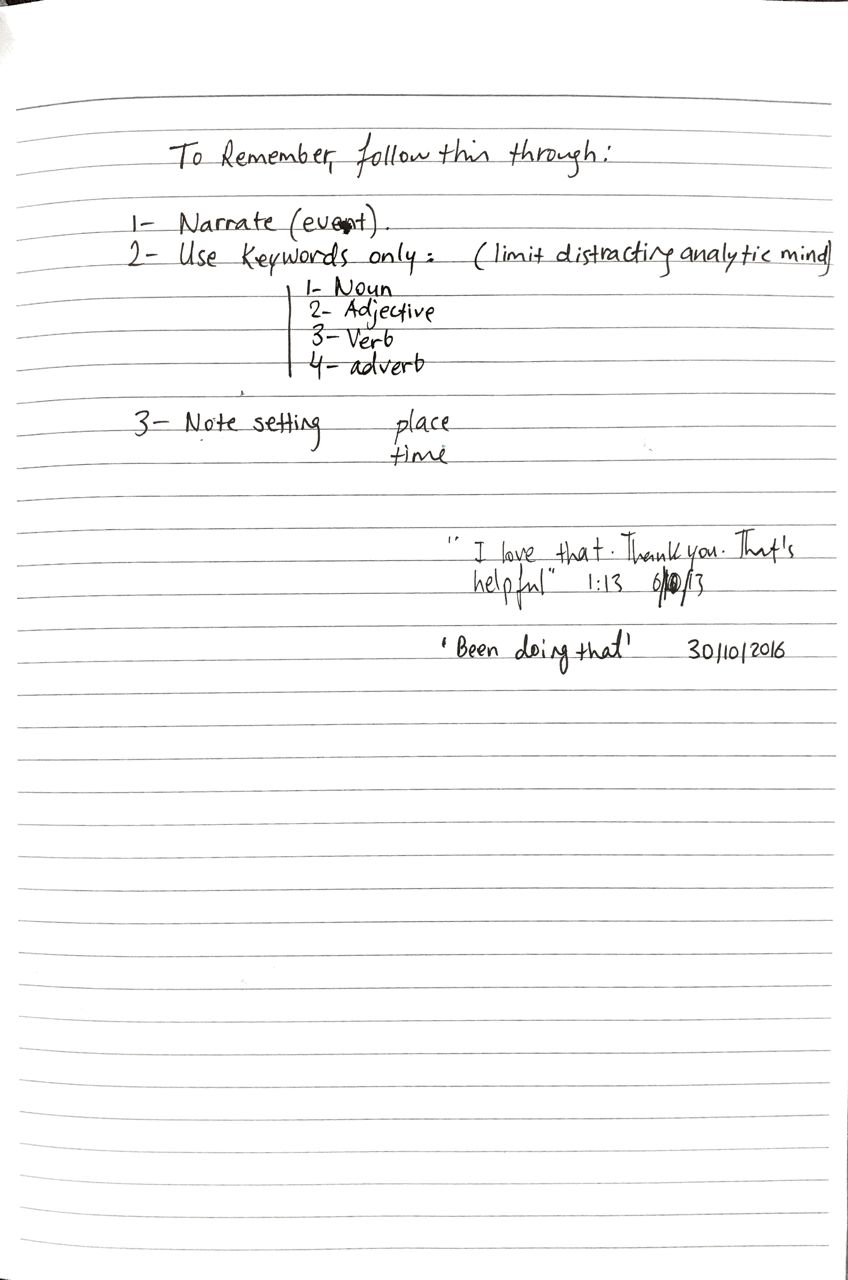 To Remember, follow this through:
1- Narrate (event).
2- Use Keywords only: (limit distracting analytic mind)
1- Noun
2- Adjective
3- Verb
4- adverb
3- Note setting place
time
"I love that. Thank you. That's
helpful" 1:13
'Been doing that' 30/10/2016